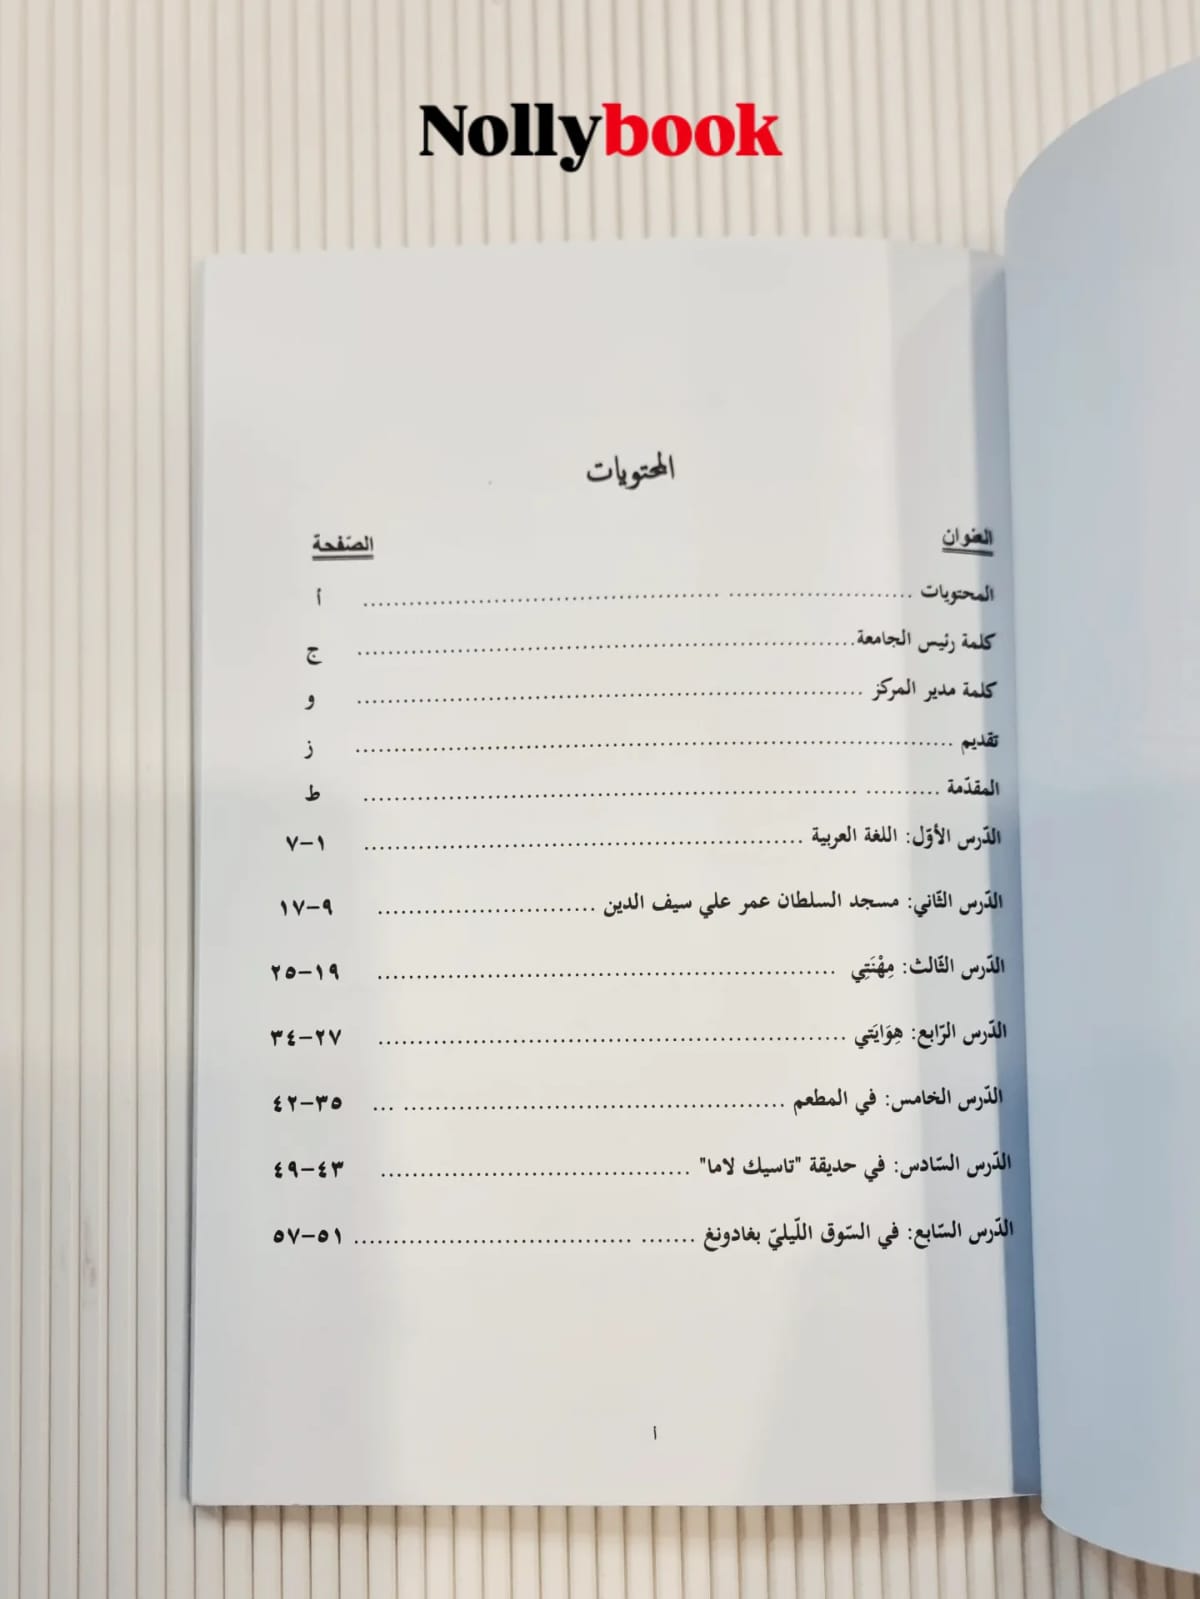 Nollybook
المحتويات
العنوان الصّفحة
المحتويات ........................ ............................................... أ
كلمة رئيس الجامعة................................................................. ج
كلمة مدير المركز ................................................................. و
تقديم .............................................................................. ز
المقدّمة .......... ............................................................... ط
الدّرس الأوّل: اللغة العربية ......................................................... ١-٧
الدّرس الثّاني: مسجد السلطان عمر علي سيف الدين ............................. ٩-١٧
الدّرس الثّالث: مِهْنَتِي ............................................................ ١٩-٢٥
الدّرس الرّابع: هِوَايَتي ............................................................. ٢٧-٣٤
الدّرس الخامس: في المطعم .................................................. ... ٣٥-٤٢
الدّرس السّادس: في حديقة "تاسيك لاما" ......................................... ٤٣-٤٩
الدّرس السّابع: في السّوق اللّيليّ بغادونغ ....... .................................... ٥١-٥٧
أ